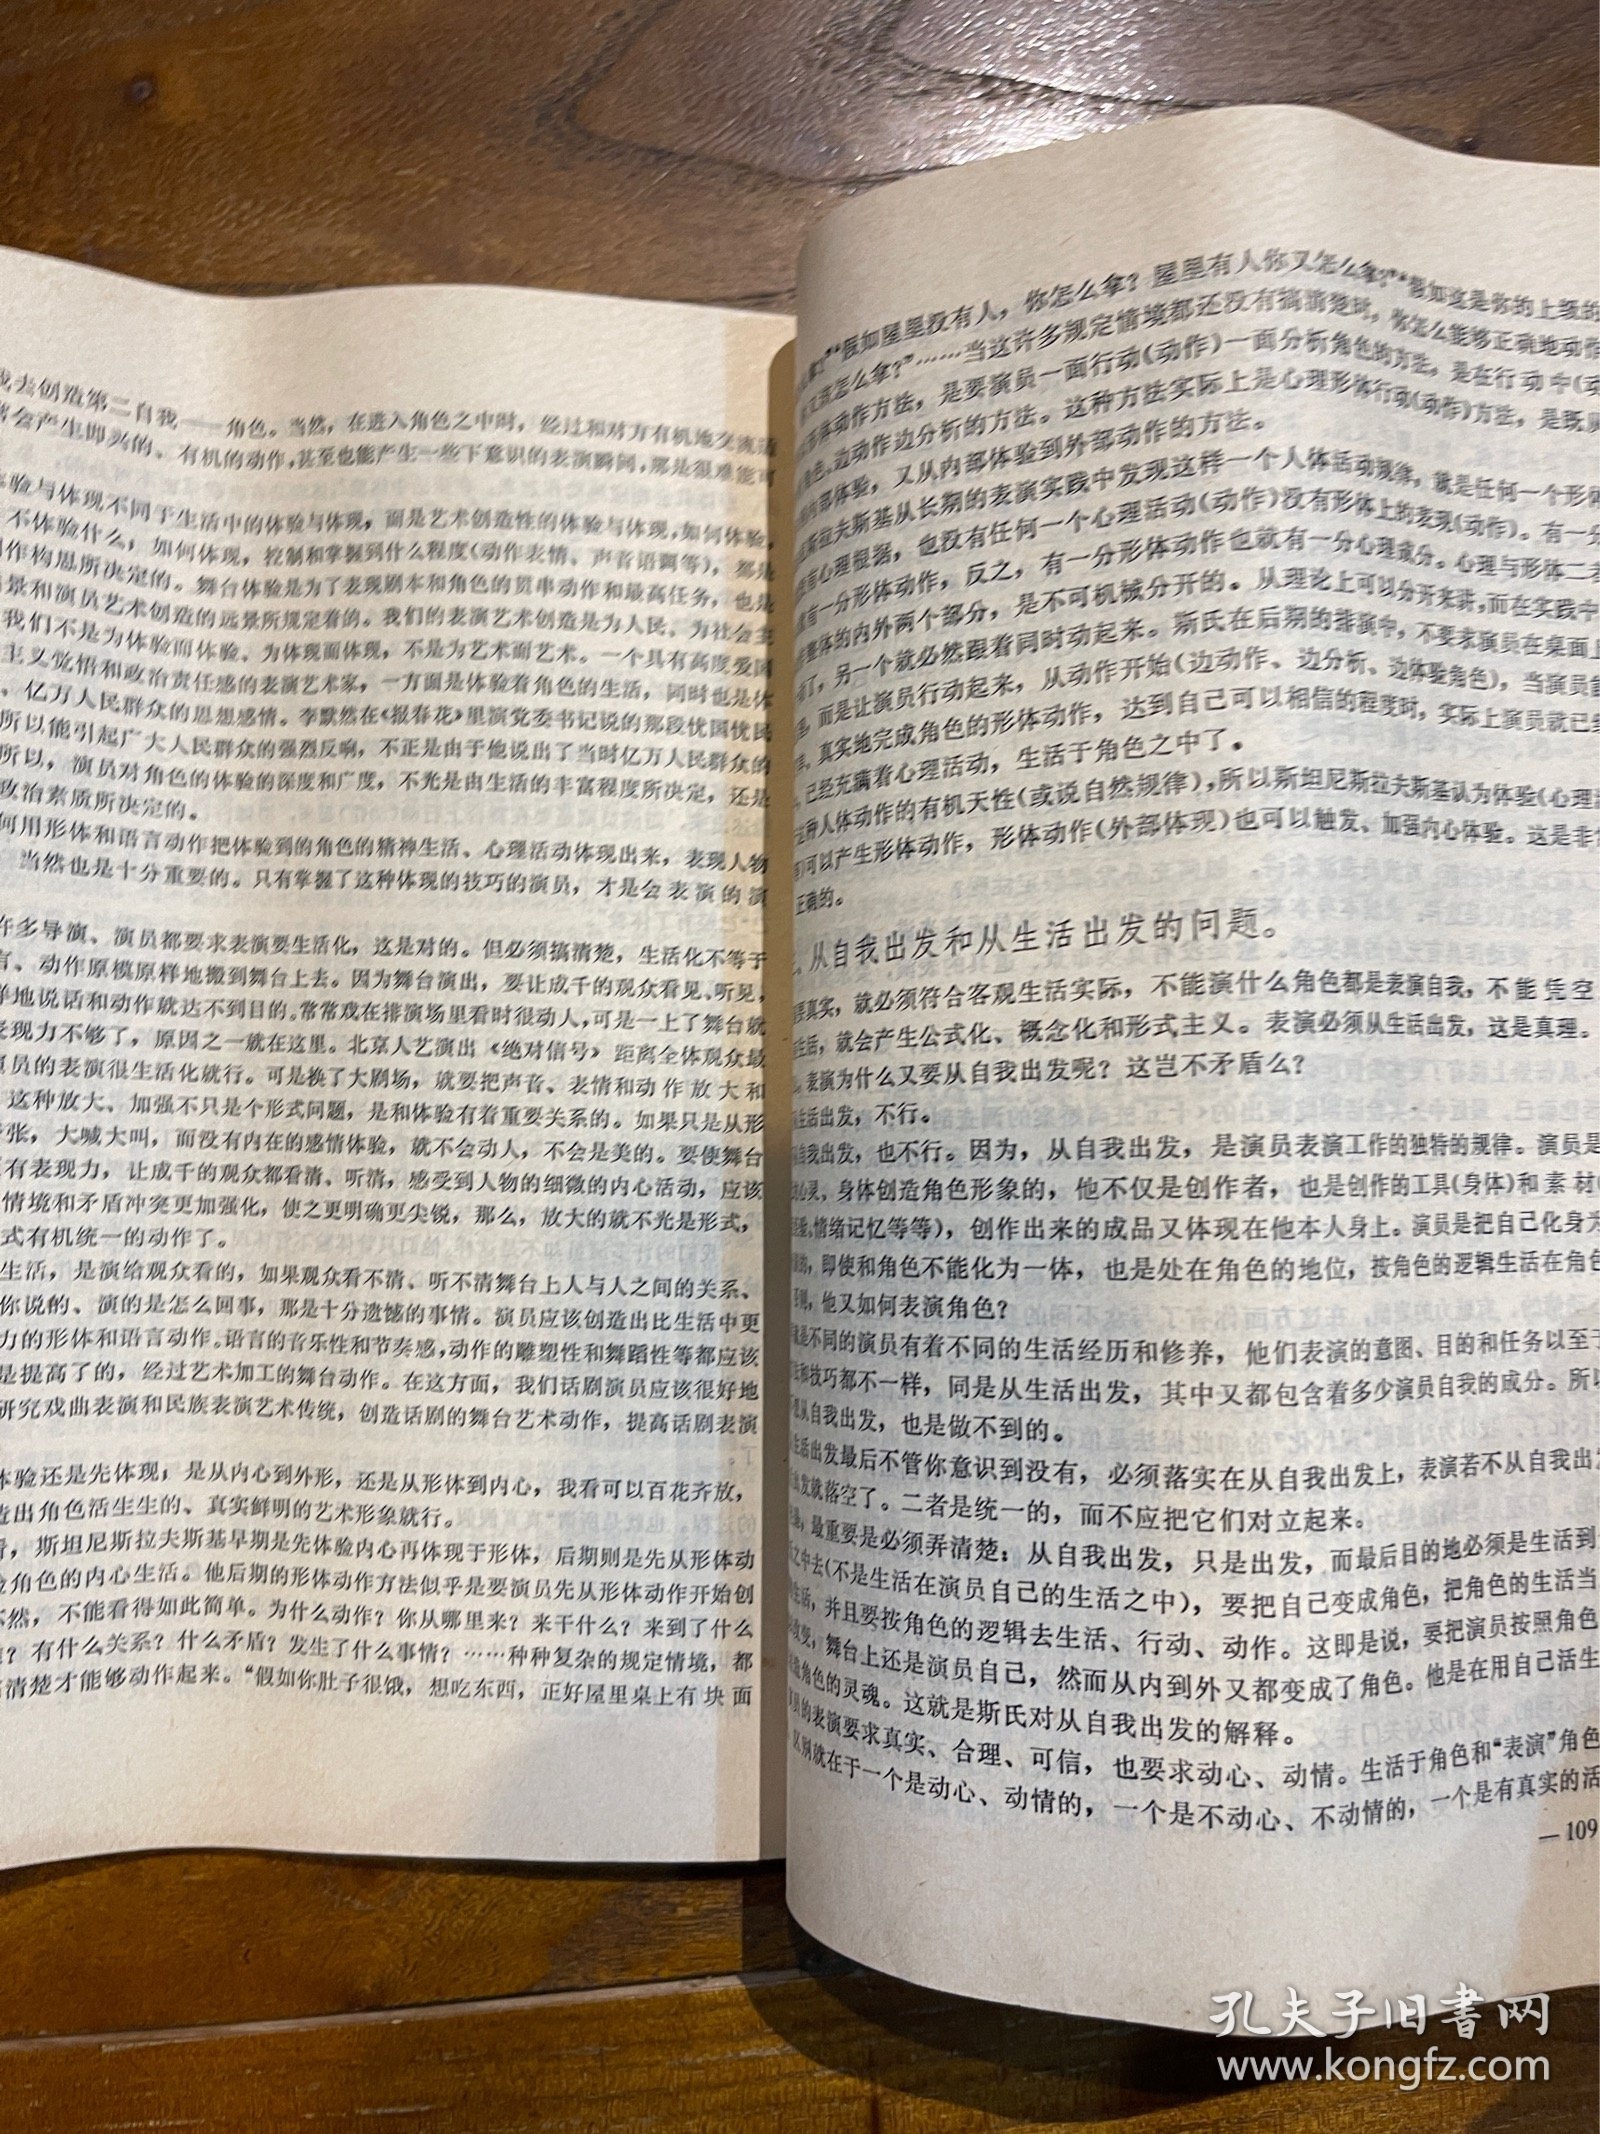 我去创造第二自我——角色。当然，在进入角色之中时，经过和对方有机地交流
会产生即兴的、有机的动作，甚至也能产生一些下意识的表演瞬间，那是很难能可
体验与体现不同于生活中的体验与体现，而是艺术创造性的体验与体现，如何体验，
不体验什么，如何体现，控制和掌握到什么程度（动作表情、声音语调等），都是
作构思所决定的。舞台体验是为了表现剧本和角色的贯串动作和最高任务，也是
景和演员艺术创造的远景所规定着的。我们的表演艺术创造是为人民，为社会主
我们不是为体验而体验、为体现而体现，不是为艺术而艺术。一个具有高度爱国
主义觉悟和政治责任感的表演艺术家，一方面是体验着角色的生活，同时也是体
、亿万人民群众的思想感情。李默然在《报春花》里演党委书记说的那段忧国忧民
所以能引起广大人民群众的强烈反响，不正是由于他说出了当时亿万人民群众的
所以，演员对角色的体验的深度和广度，不光是由生活的丰富程度所决定，还是
政治素质所决定的。
何用形体和语言动作把体验到的角色的精神生活、心理活动体现出来，表现人物
当然也是十分重要的。只有掌握了这种体现的技巧的演员，才是会表演的演
许多导演、演员都要求表演要生活化，这是对的。但必须搞清楚，生活化不等于
言、动作原模原样地搬到舞台上去。因为舞台演出，要让成千的观众看见、听见，
样地说话和动作就达不到目的。常常戏在排演场里看时很动人，可是一上了舞台就
表现力不够了，原因之一就在这里。北京人艺演出《绝对信号》距离全体观众最
演员的表演很生活化就行。可是换了大剧场，就要把声音、表情和动作放大和
这种放大、加强不只是个形式问题，是和体验有着重要关系的。如果只是从形
张，大喊大叫，而没有内在的感情体验，就不会动人，不会是美的。要使舞台
有表现力，让成千的观众都看清、听清，感受到人物的细微的内心活动，应该
情境和矛盾冲突更加强化，使之更明确更尖锐，那么，放大的就不光是形式，
式有机统一的动作了。
生活，是演给观众看的，如果观众看不清、听不清舞台上人与人之间的关系、
你说的、演的是怎么回事，那是十分遗憾的事情。演员应该创造出比生活中更
力的形体和语言动作。语言的音乐性和节奏感，动作的雕塑性和舞蹈性等都应该
是提高了的，经过艺术加工的舞台动作。在这方面，我们话剧演员应该很好地
研究戏曲表演和民族表演艺术传统，创造话剧的舞台艺术动作，提高话剧表演
体验还是先体现，是从内心到外形，还是从形体到内心，我看可以百花齐放，
造出角色活生生的、真实鲜明的艺术形象就行。
看，斯坦尼斯拉夫斯基早期是先体验内心再体现于形体，后期则是先从形体动
验角色的内心生活。他后期的形体动作方法似乎是要演员先从形体动作开始创
不然，不能看得如此简单。为什么动作？你从哪里来？来干什么？来到了什么
？有什么关系？什么矛盾？发生了什么事情？……种种复杂的规定情境，都
清楚才能够动作起来。“假如你肚子很饿，想吃东西，正好屋里桌上有块面
“假如屋里没有人，你怎么拿？屋里有人你又怎么拿？”“假如这是你的上级的
怎么拿？”……当这许多规定情境都还没有搞清楚时，你怎么能够正确地动作
动作方法，是要演员一面行动（动作）一面分析角色的方法，是在行动中（动
边动作边分析的方法。这种方法实际上是心理形体行动（动作）方法，是既
内部体验，又从内部体验到外部动作的方法。
斯拉夫斯基从长期的表演实践中发现这样一个人体活动规律，就是任何一个形体
心理根据，也没有任何一个心理活动（动作）没有形体上的表现（动作）。有一分
有一分形体动作，反之，有一分形体动作也就有一分心理成分。心理与形体二者
整体的内外两个部分，是不可机械分开的。从理论上可以分开来讲，而在实践中
了，另一个就必然跟着同时动起来。斯氏在后期的排演中，不要求演员在桌面上
，而是让演员行动起来，从动作开始（边动作、边分析、边体验角色），当演员能
真实地完成角色的形体动作，达到自己可以相信的程度时，实际上演员就已经
已经充满着心理活动，生活于角色之中了。
这种人体动作的有机天性（或说自然规律），所以斯坦尼斯拉夫斯基认为体验（心理活
可以产生形体动作，形体动作（外部体现）也可以触发、加强内心体验。这是非常
正确的。
、从自我出发和从生活出发的问题。
要真实，就必须符合客观生活实际，不能演什么角色都是表演自我，不能凭空
生活，就会产生公式化、概念化和形式主义。表演必须从生活出发，这是真理。
表演为什么又要从自我出发呢？这岂不矛盾么？
生活出发，不行。
自我出发，也不行。因为，从自我出发，是演员表演工作的独特的规律。演员是
心灵、身体创造角色形象的，他不仅是创作者，也是创作的工具（身体）和素材（
、情绪记忆等等），创作出来的成品又体现在他本人身上。演员是把自己化身为
，即使和角色不能化为一体，也是处在角色的地位，按角色的逻辑生活在角色
否则，他又如何表演角色？
就是不同的演员有着不同的生活经历和修养，他们表演的意图、目的和任务以至于
和技巧都不一样，同是从生活出发，其中又都包含着多少演员自我的成分。所以
从自我出发，也是做不到的。
生活出发最后不管你意识到没有，必须落实在从自我出发上，表演若不从自我出发
出发就落空了。二者是统一的，而不应把它们对立起来。
最重要是必须弄清楚：从自我出发，只是出发，而最后目的地必须是生活到
之中去（不是生活在演员自己的生活之中），要把自己变成角色，把角色的生活当
生活，并且要按角色的逻辑去生活、行动、动作。这即是说，要把演员按照角色
改变，舞台上还是演员自己，然而从内到外又都变成了角色。他是在用自己活生
造角色的灵魂。这就是斯氏对从自我出发的解释。
的表演要求真实、合理、可信，也要求动心、动情。生活于角色和“表演”角色
区别就在于一个是动心、动情的，一个是不动心、不动情的，一个是有真实的活
— 109
孔夫子旧书网
www.kongfz.com